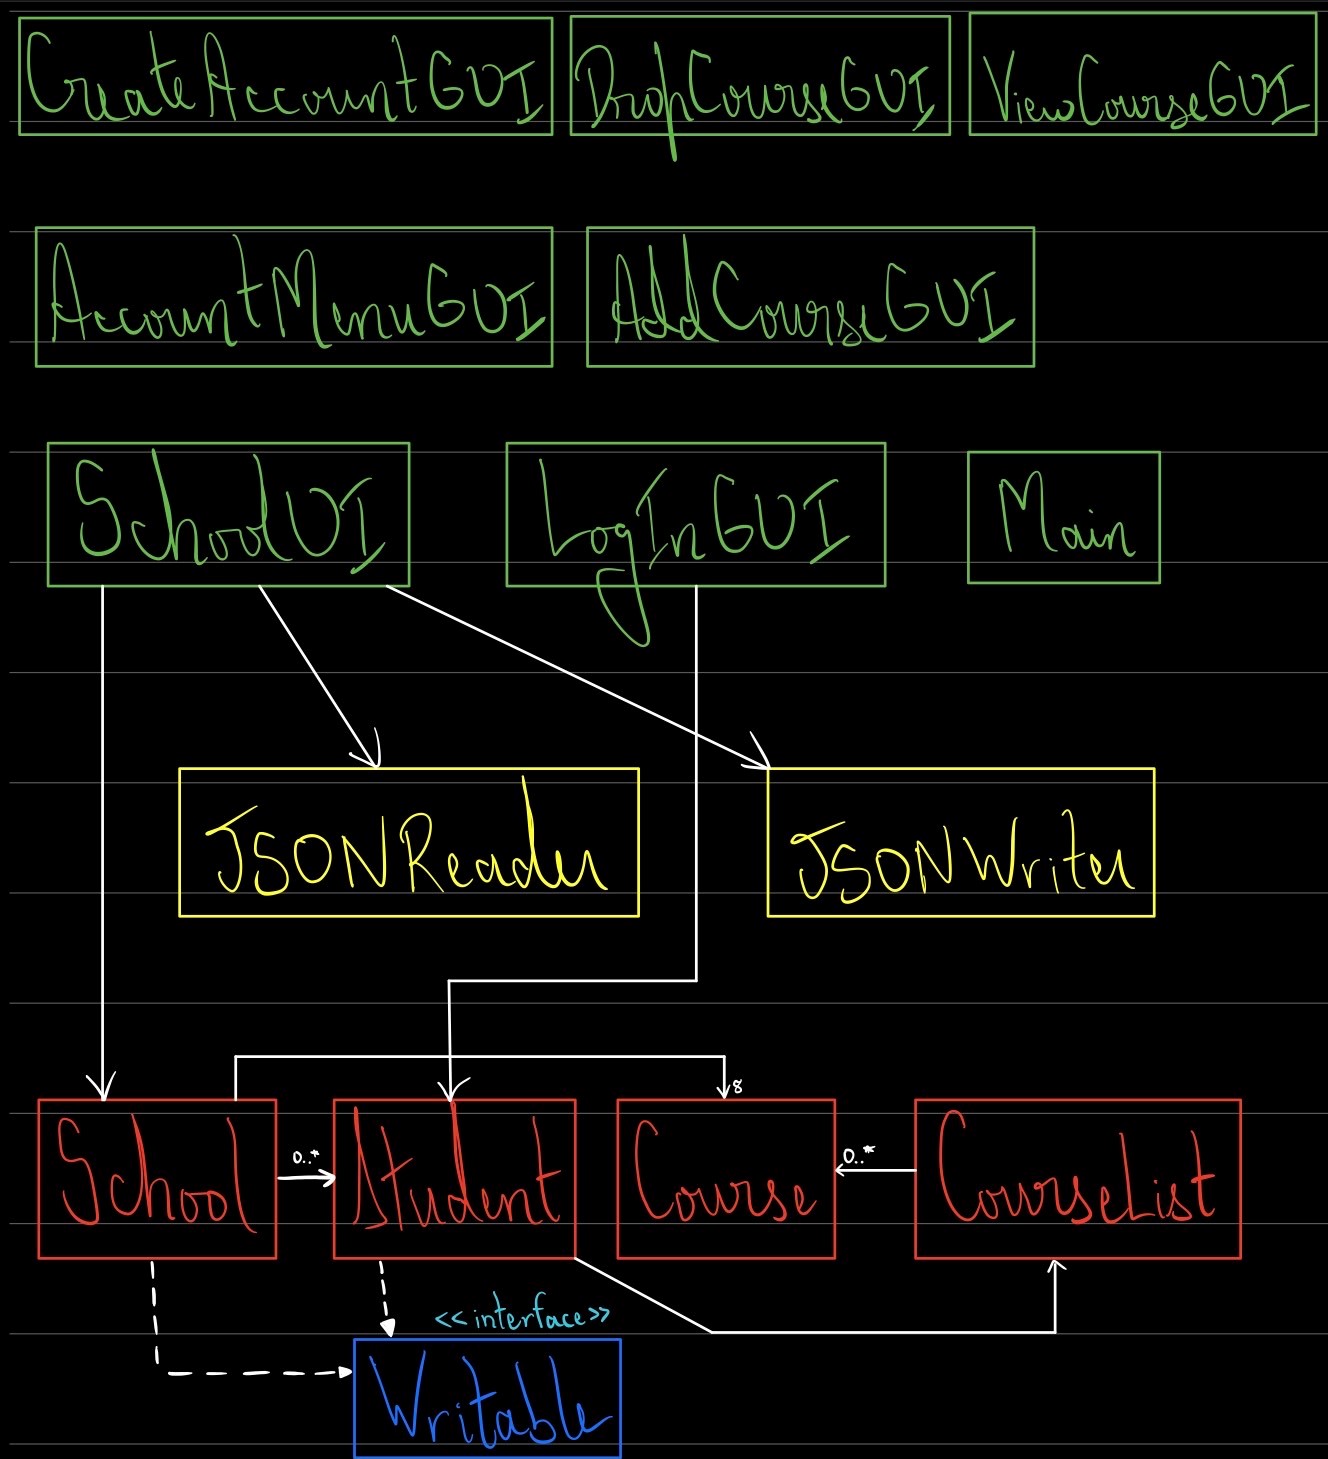 CreateAccountGUI DropCourseGUI ViewCourseGUI
AccountMenuGUI AddCourseGUI
SchoolUI LogInGUI Main
JSONReader JSONWriter
8
0..* 0..*
School Student Course CourseList
<<interface>>
Writable